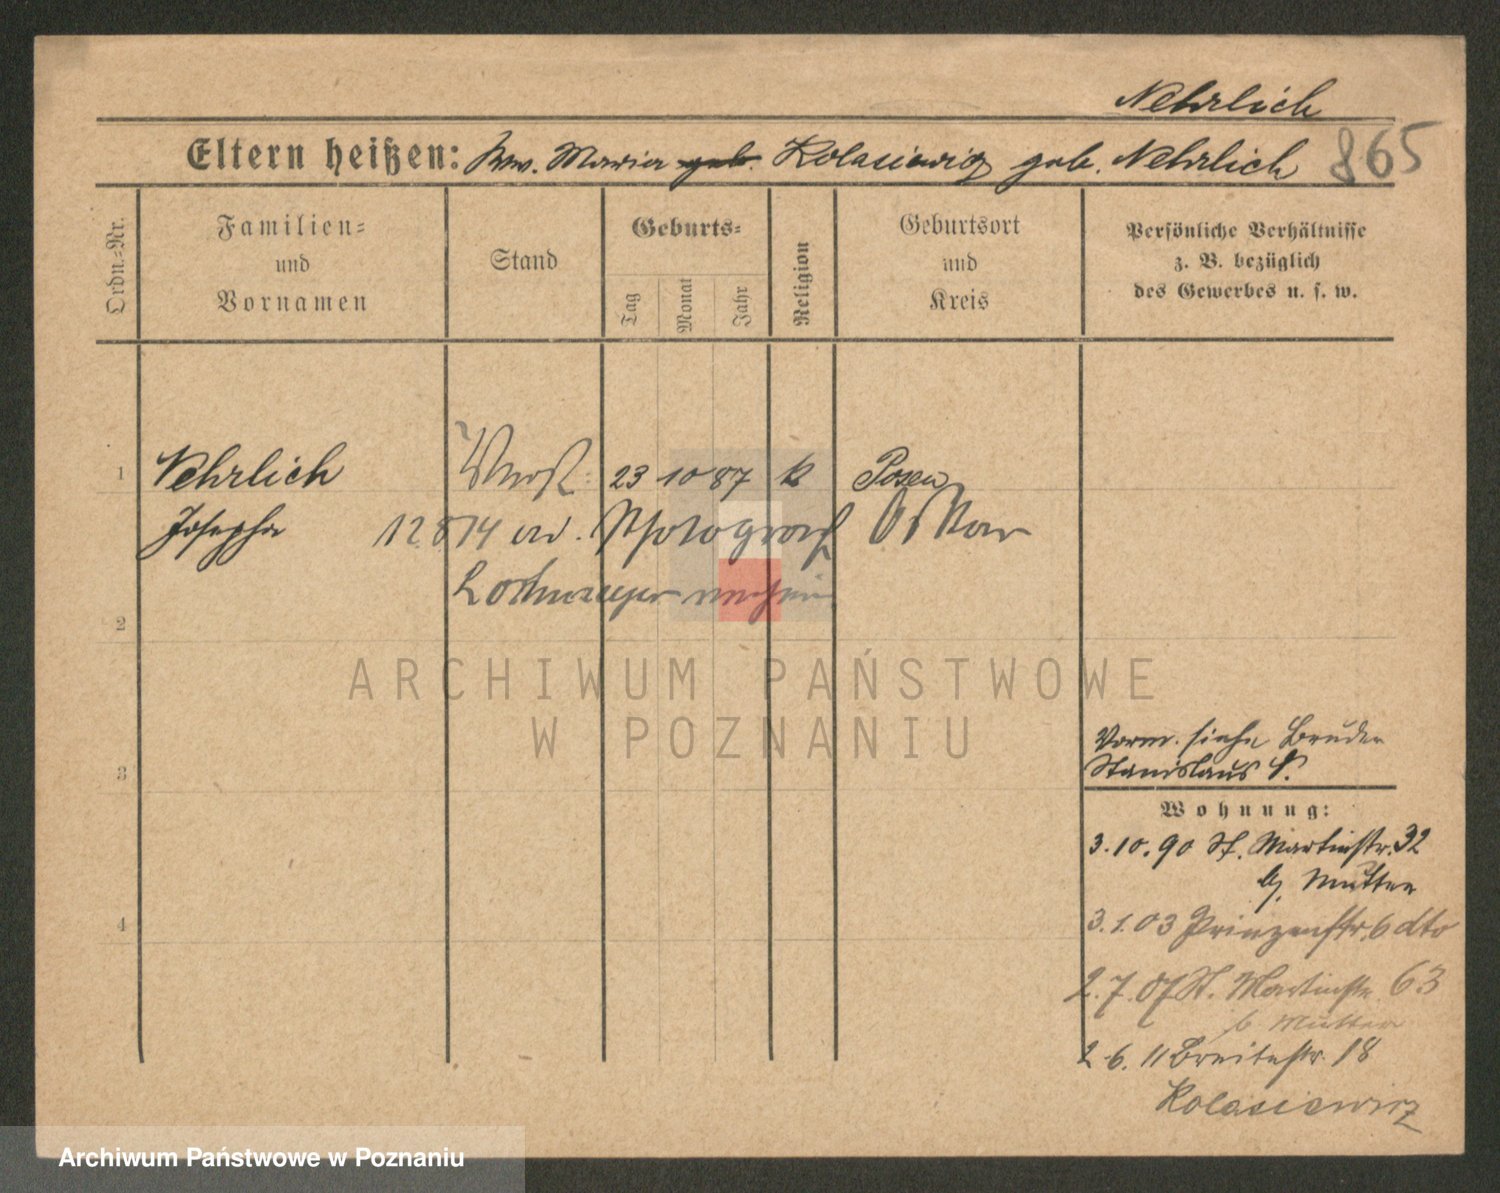 Nehrlich
Eltern heißen: Ww. Maria geb. Kolasiewicz geb. Nehrlich 865
Ordn.-Nr.
Familien-
und
Vornamen
Stand
Geburts-
Tag
Monat
Jahr
Religion
Geburtsort
und
Kreis
Persönliche Verhältnisse
z. B. bezüglich
des Gewerbes u. s. w.
1 Nehrlich 23 10 87 k Posen
Josepha 12 8 14 Photograf Oskar
2
ARCHIWUM PAŃSTWOWE
W POZNANIU
Vorm. siehe Bruder
3 Stanislaus S.
Wohnung:
3.10.90 St. Martinstr. 32
b. Mutter
4 3.1.03 Prinzenstr. 6 dto
2.7.07 St. Martinstr. 63
b. Mutter
2.6.11 Breitestr. 18
Kolasiewicz
Archiwum Państwowe w Poznaniu